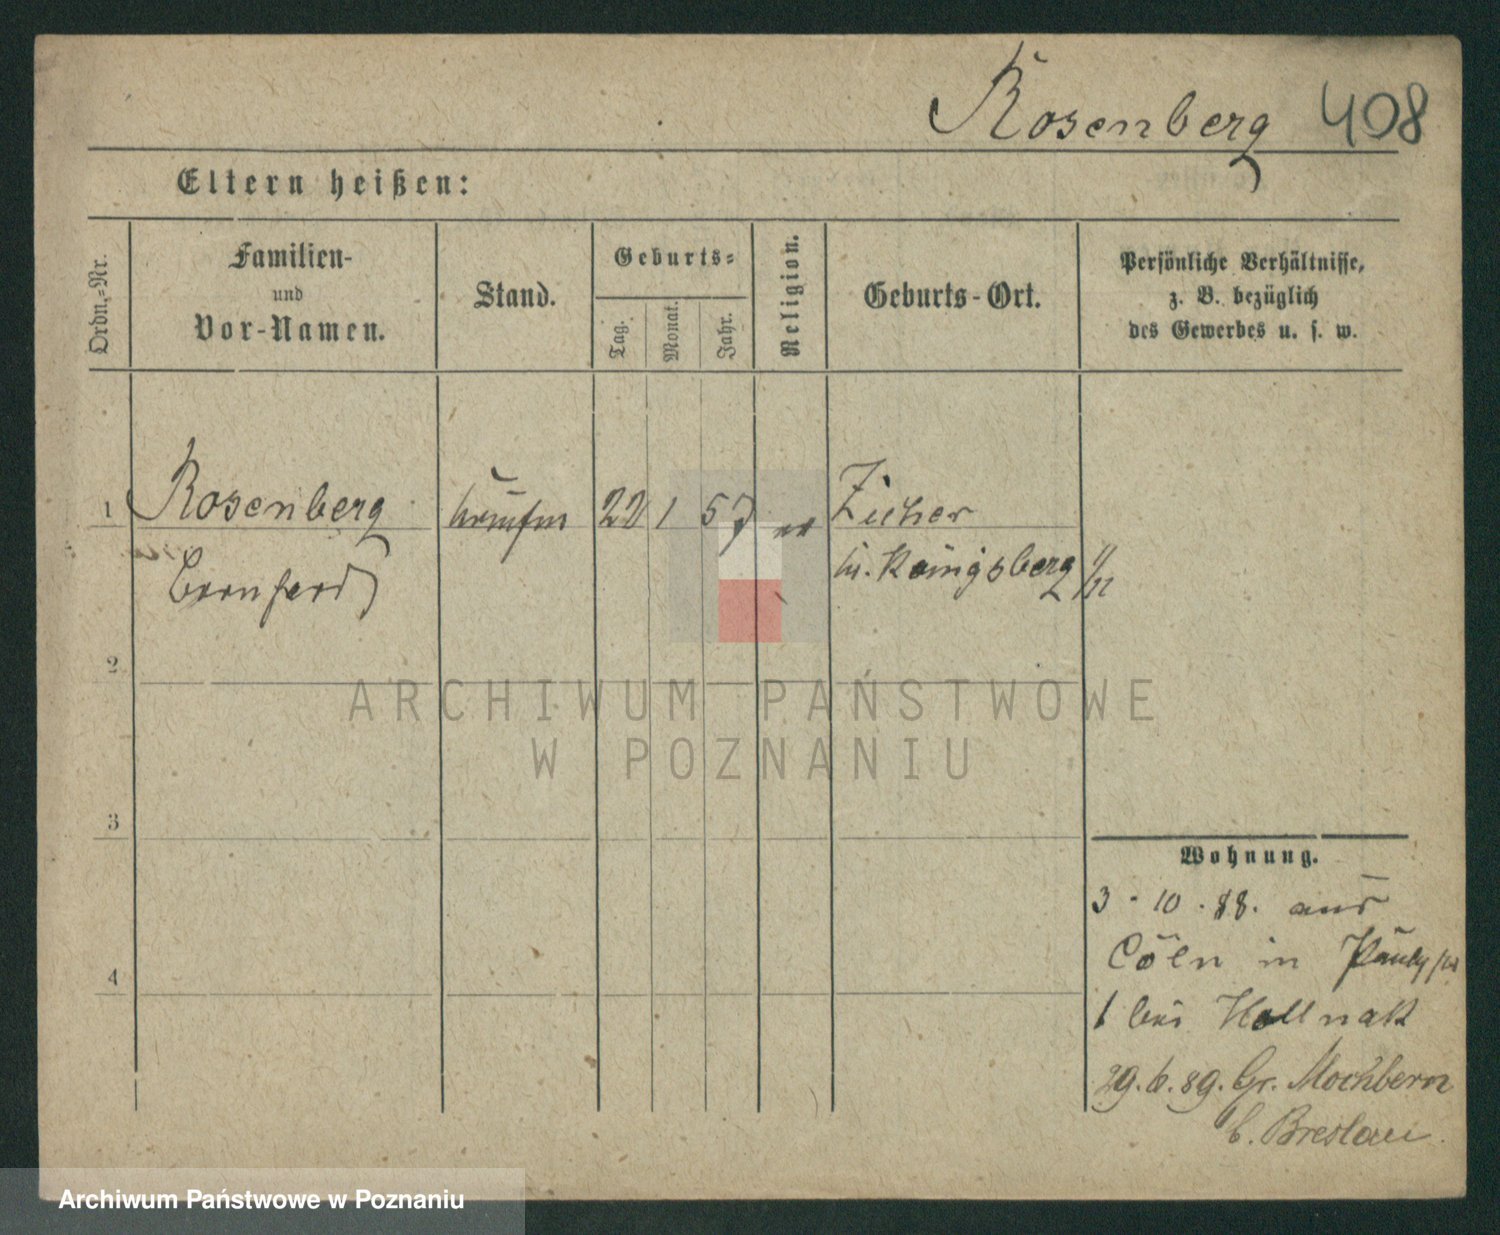 Rosenberg 408
Eltern heißen:
Ordn.-Nr.
Familien-
und
Vor-Namen.
Stand.
Geburts-
Tag.
Monat.
Jahr.
Religion.
Geburts-Ort.
Persönliche Verhältnisse,
z. B. bezüglich
des Gewerbes u. s. w.
1 Rosenberg 22 1 57 Zicher
Königsberg
2
3
4
ARCHIWUM PAŃSTWOWE
W POZNANIU
Wohnung.
3 - 10 - 88. aus
Cöln in
1 bei Hollnak
29. 6. 89. Gr. Mochbern
b. Breslau.
Archiwum Państwowe w Poznaniu